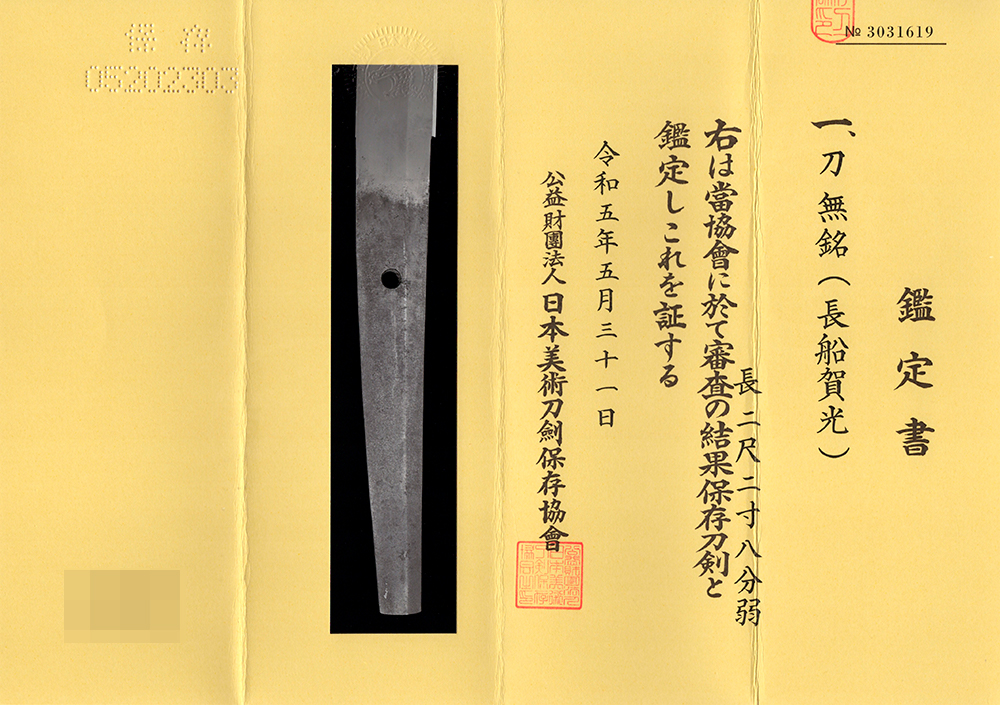 № 3031619
鑑定書
一、刀 無銘（長船賀光）
長 二尺二寸八分弱
右は當協會に於て審査の結果保存刀剣と
鑑定しこれを証する
令和五年五月三十一日
公益財團法人 日本美術刀劍保存協會
保存
05202303